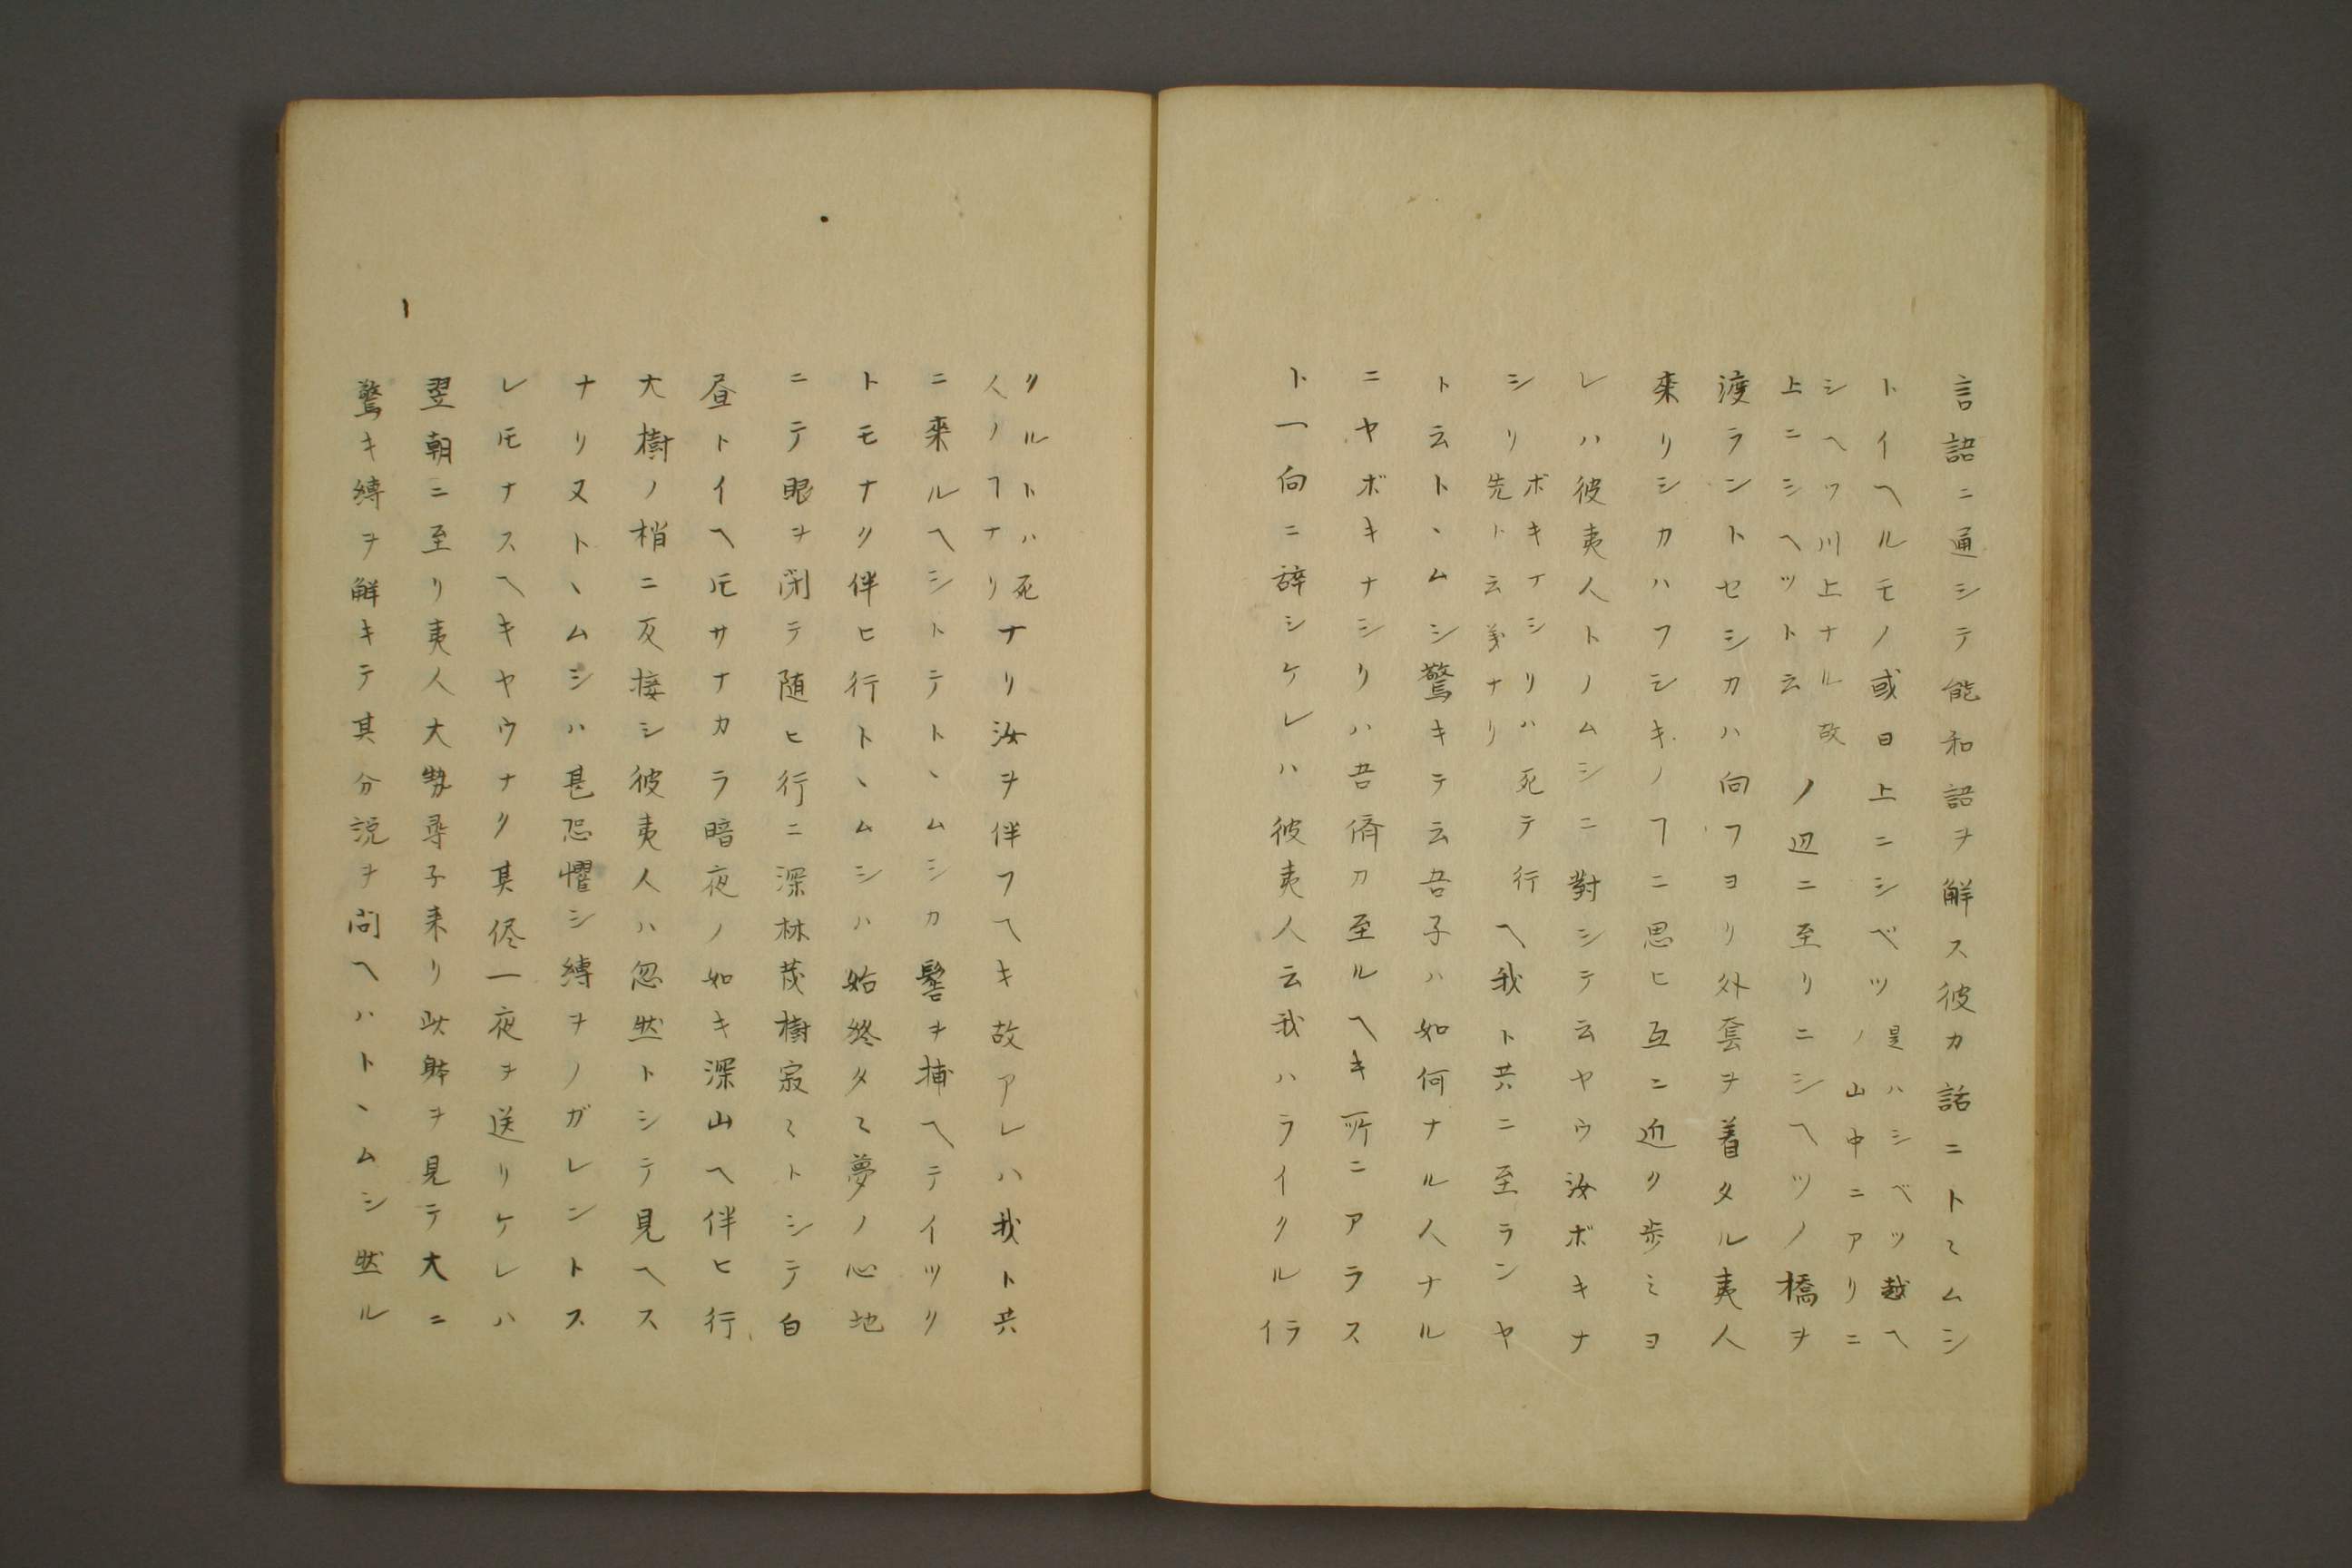 言語ニ通シテ能和語ヲ解ス彼カ話ニトミムシ
トイヘルモノ或日上ニシベツ
是ハシベツ越ヘ
ノ山中ニアリニ
シヘツ川上ナル故
上ニシヘツト云
ノ辺ニ至リニシヘツノ橋ヲ
渡ラントセシカハ向フヨリ外套ヲ着タル夷人
来リシカハフシキノヿニ思ヒ互ニ近ク歩ミヨ
レハ彼夷人トノムシニ對シテ云ヤウ汝ボキナ
シリ
ボキナシリハ死テ行
先ト云義ナリ
ヘ我ト共ニ至ランヤ
ト云トヽムシ驚キテ云吾子ハ如何ナル人ナル
ニヤボキナシリハ吾儕カ至ルヘキ所ニアラス
ト一向ニ辞シケレハ彼夷人云我ハライクルイラ
クルトハ死
人ノヿナリ
ナリ汝ヲ伴フヘキ故アレハ我ト共
ニ來ルヘシトテトヽムシカ髻ヲ捕ヘテイツク
トモナク伴ヒ行トヽムシハ始終タミ夢ノ心地
ニテ眼ヲ閉テ随ヒ行ニ深林茂樹寂ミトシテ白
昼トイヘ𪜈サナカラ暗夜ノ如キ深山ヘ伴ヒ行
大樹ノ梢ニ反接シ彼夷人ハ忽然トシテ見ヘス
ナリヌトヽムシハ甚恐懼シ縛ヲノガレントス
レ𪜈ナスヘキヤウナク其侭一夜ヲ送リケレハ
翌朝ニ至リ夷人大勢尋子来リ此躰ヲ見テ大ニ
驚キ縛ヲ解キテ其分説ヲ問ヘハトヽムシ然ル